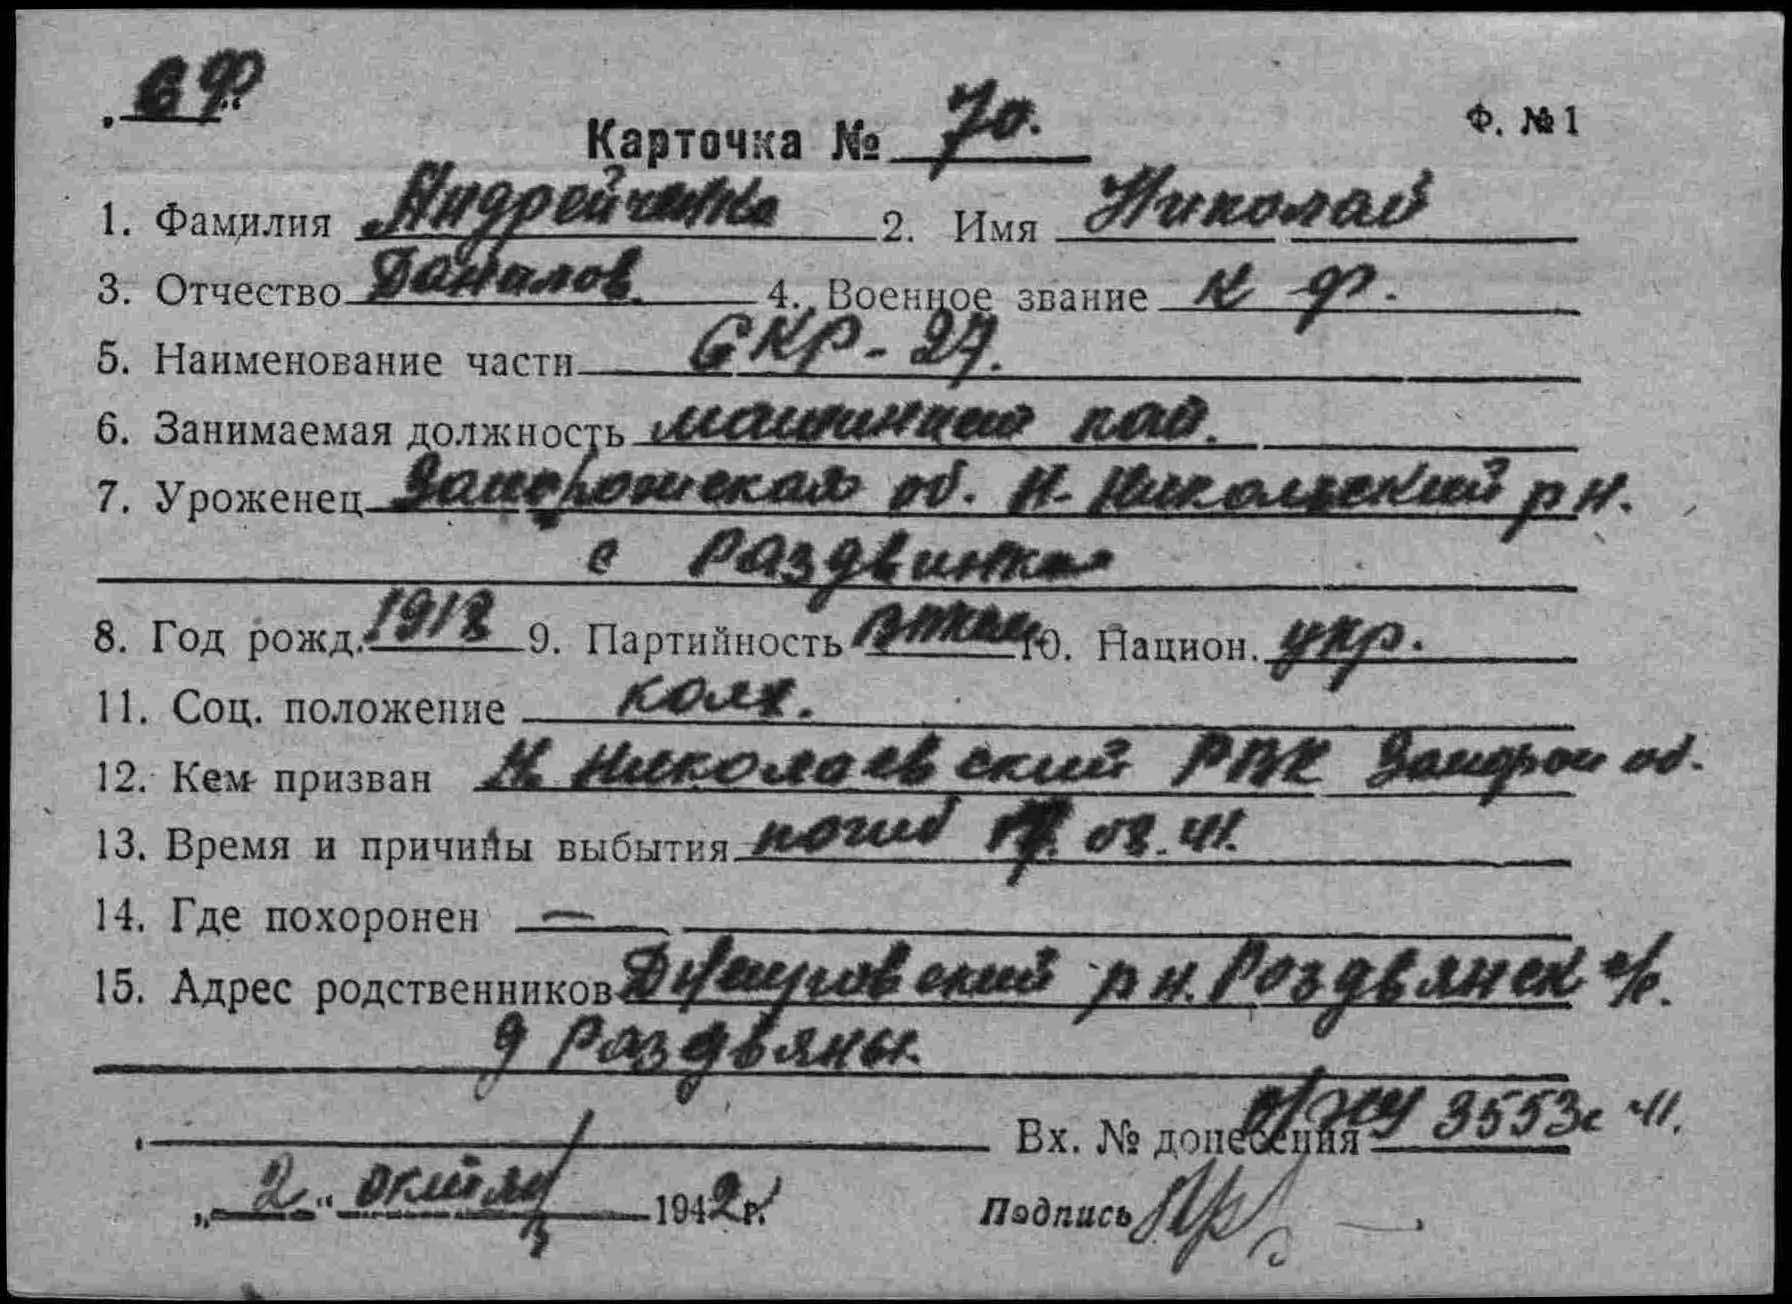 СФ
Карточка № 70. Ф. № 1
1. Фамилия Андрейченко 2. Имя Николай
3. Отчество Данилов. 4. Военное звание к ф.
5. Наименование части СКР-27.
6. Занимаемая должность машинист
7. Уроженец Запорожская об. Н-Николаевский р н.
с Раздвинка
8. Год рожд. 1918 9. Партийность 10. Национ. укр.
11. Соц. положение колх.
12. Кем призван Н Николаевский РВК Запорож об.
13. Время и причины выбытия погиб 08.41.
14. Где похоронен —
15. Адрес родственников р н. Роздвянск с/с.
д Раздвяны.
Вх. № донесения 3553с 41.
„2“ октября 1942 г. Подпись